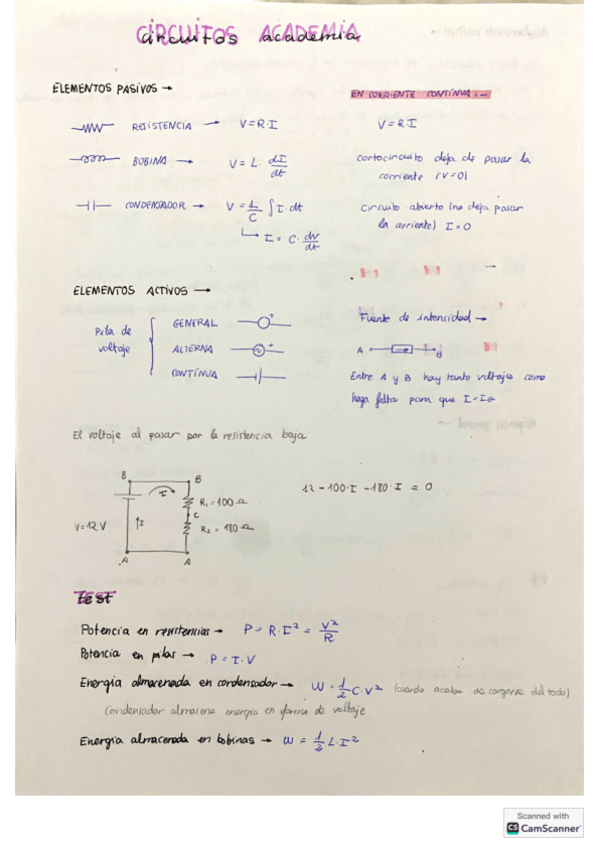 Circuitos academia
ELEMENTOS PASIVOS →
EN CORRIENTE CONTÍNUA :-
RESISTENCIA → V = R·I
V = R·I
BOBINA → V = L · dI/dt
cortocircuito deja de pasar la
corriente (V=0)
CONDENSADOR → V = L/C ∫ I·dt
I = C · dV/dt
Circuito abierto (no deja pasar
la corriente) I = 0
ELEMENTOS ACTIVOS →
Pila de
voltaje
GENERAL
ALTERNA
CONTÍNUA
Fuente de intensidad →
A B
Entre A y B hay tanto voltaje como
haga falta para que
El voltaje al pasar por la resistencia baja
B B
I
R₁ = 100 Ω
C
V = 12 V
I
R₂ = 180 Ω
A A
12 - 100·I - 180·I = 0
test
Potencia en resistencias → P = R·I² = V²/R
Potencia en pilas → P = I·V
Energía almacenada en condensador → W = 1/2 C·V² (cuando acaba de cargarse del todo)
Condensador almacena energía en forma de voltaje
Energía almacenada en bobinas → W = 1/2 L·I²
Scanned with
CS CamScanner